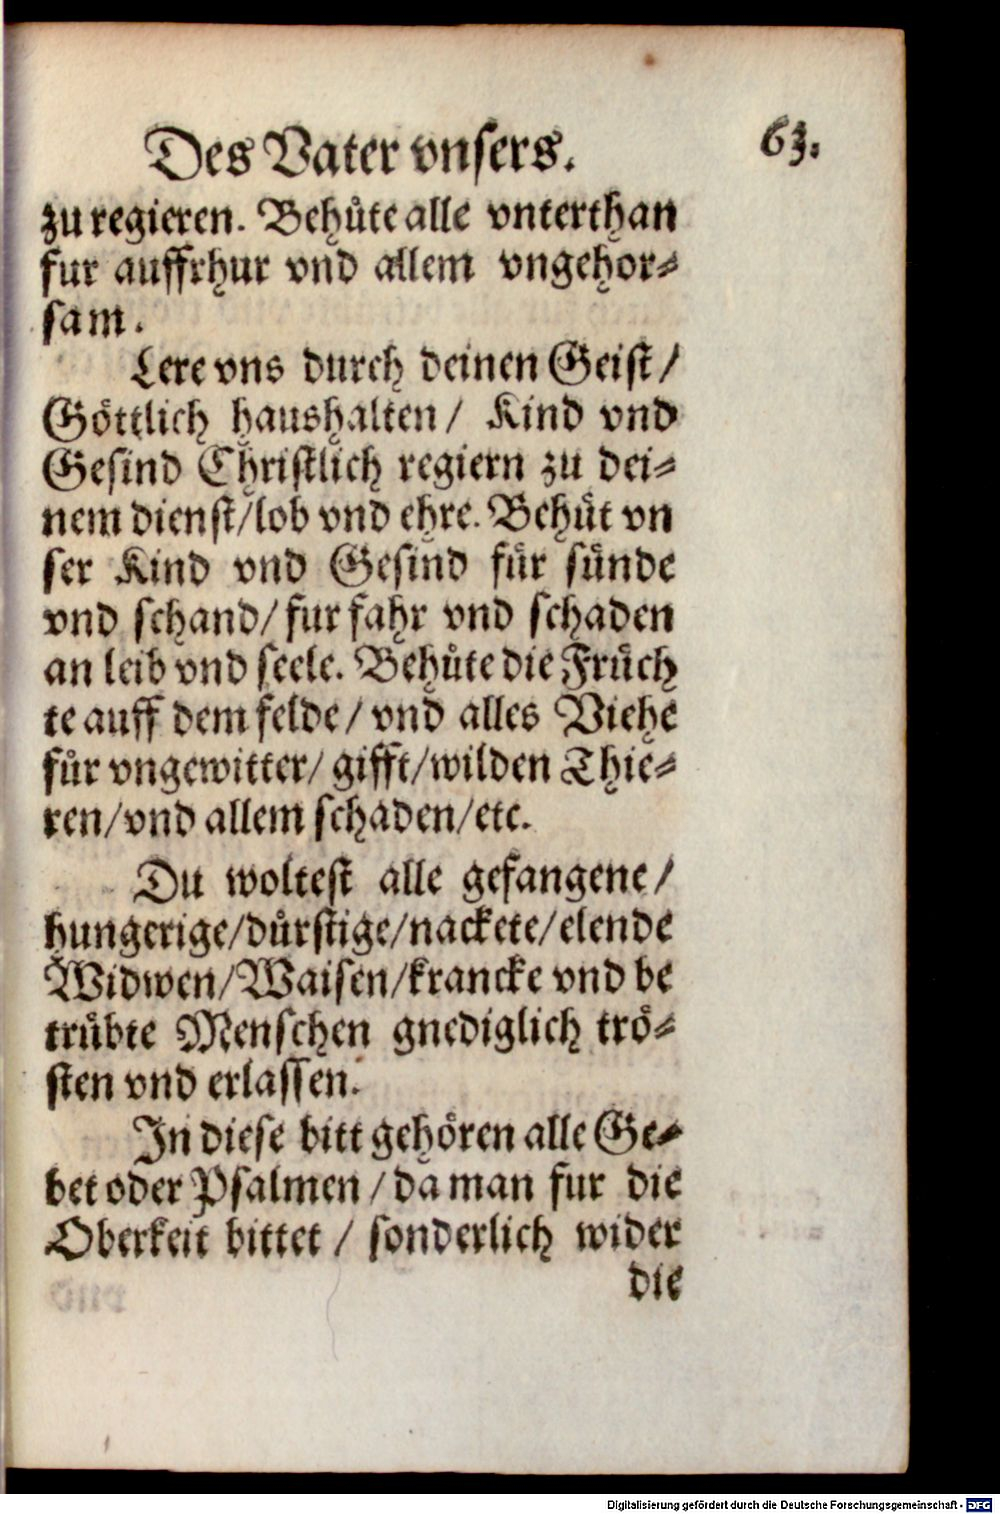 Des Vater vnsers. 63.
zu regieren. Behüte alle vnterthan
fur auffrhur vnd allem vngehor-
sam.
Lere vns durch deinen Geist/
Göttlich haushalten/ Kind vnd
Gesind Christlich regiern zu dei-
nem dienst/lob vnd ehre. Behüt vn
ser Kind vnd Gesind für sünde
vnd schand/fur fahr vnd schaden
an leib vnd seele. Behüte die Früch
te auff dem felde/ vnd alles Viehe
für vngewitter/ gifft/wilden Thie-
ren/vnd allem schaden/etc.
Du woltest alle gefangene/
hungerige/dürstige/nackete/elende
Widwen/Waisen/krancke vnd be
trübte Menschen gnediglich trö-
sten vnd erlassen.
In diese bitt gehören alle Ge-
bet oder Psalmen/da man fur die
Oberkeit bittet/ sonderlich wider
die
Digitalisierung gefördert durch die Deutsche Forschungsgemeinschaft - DFG